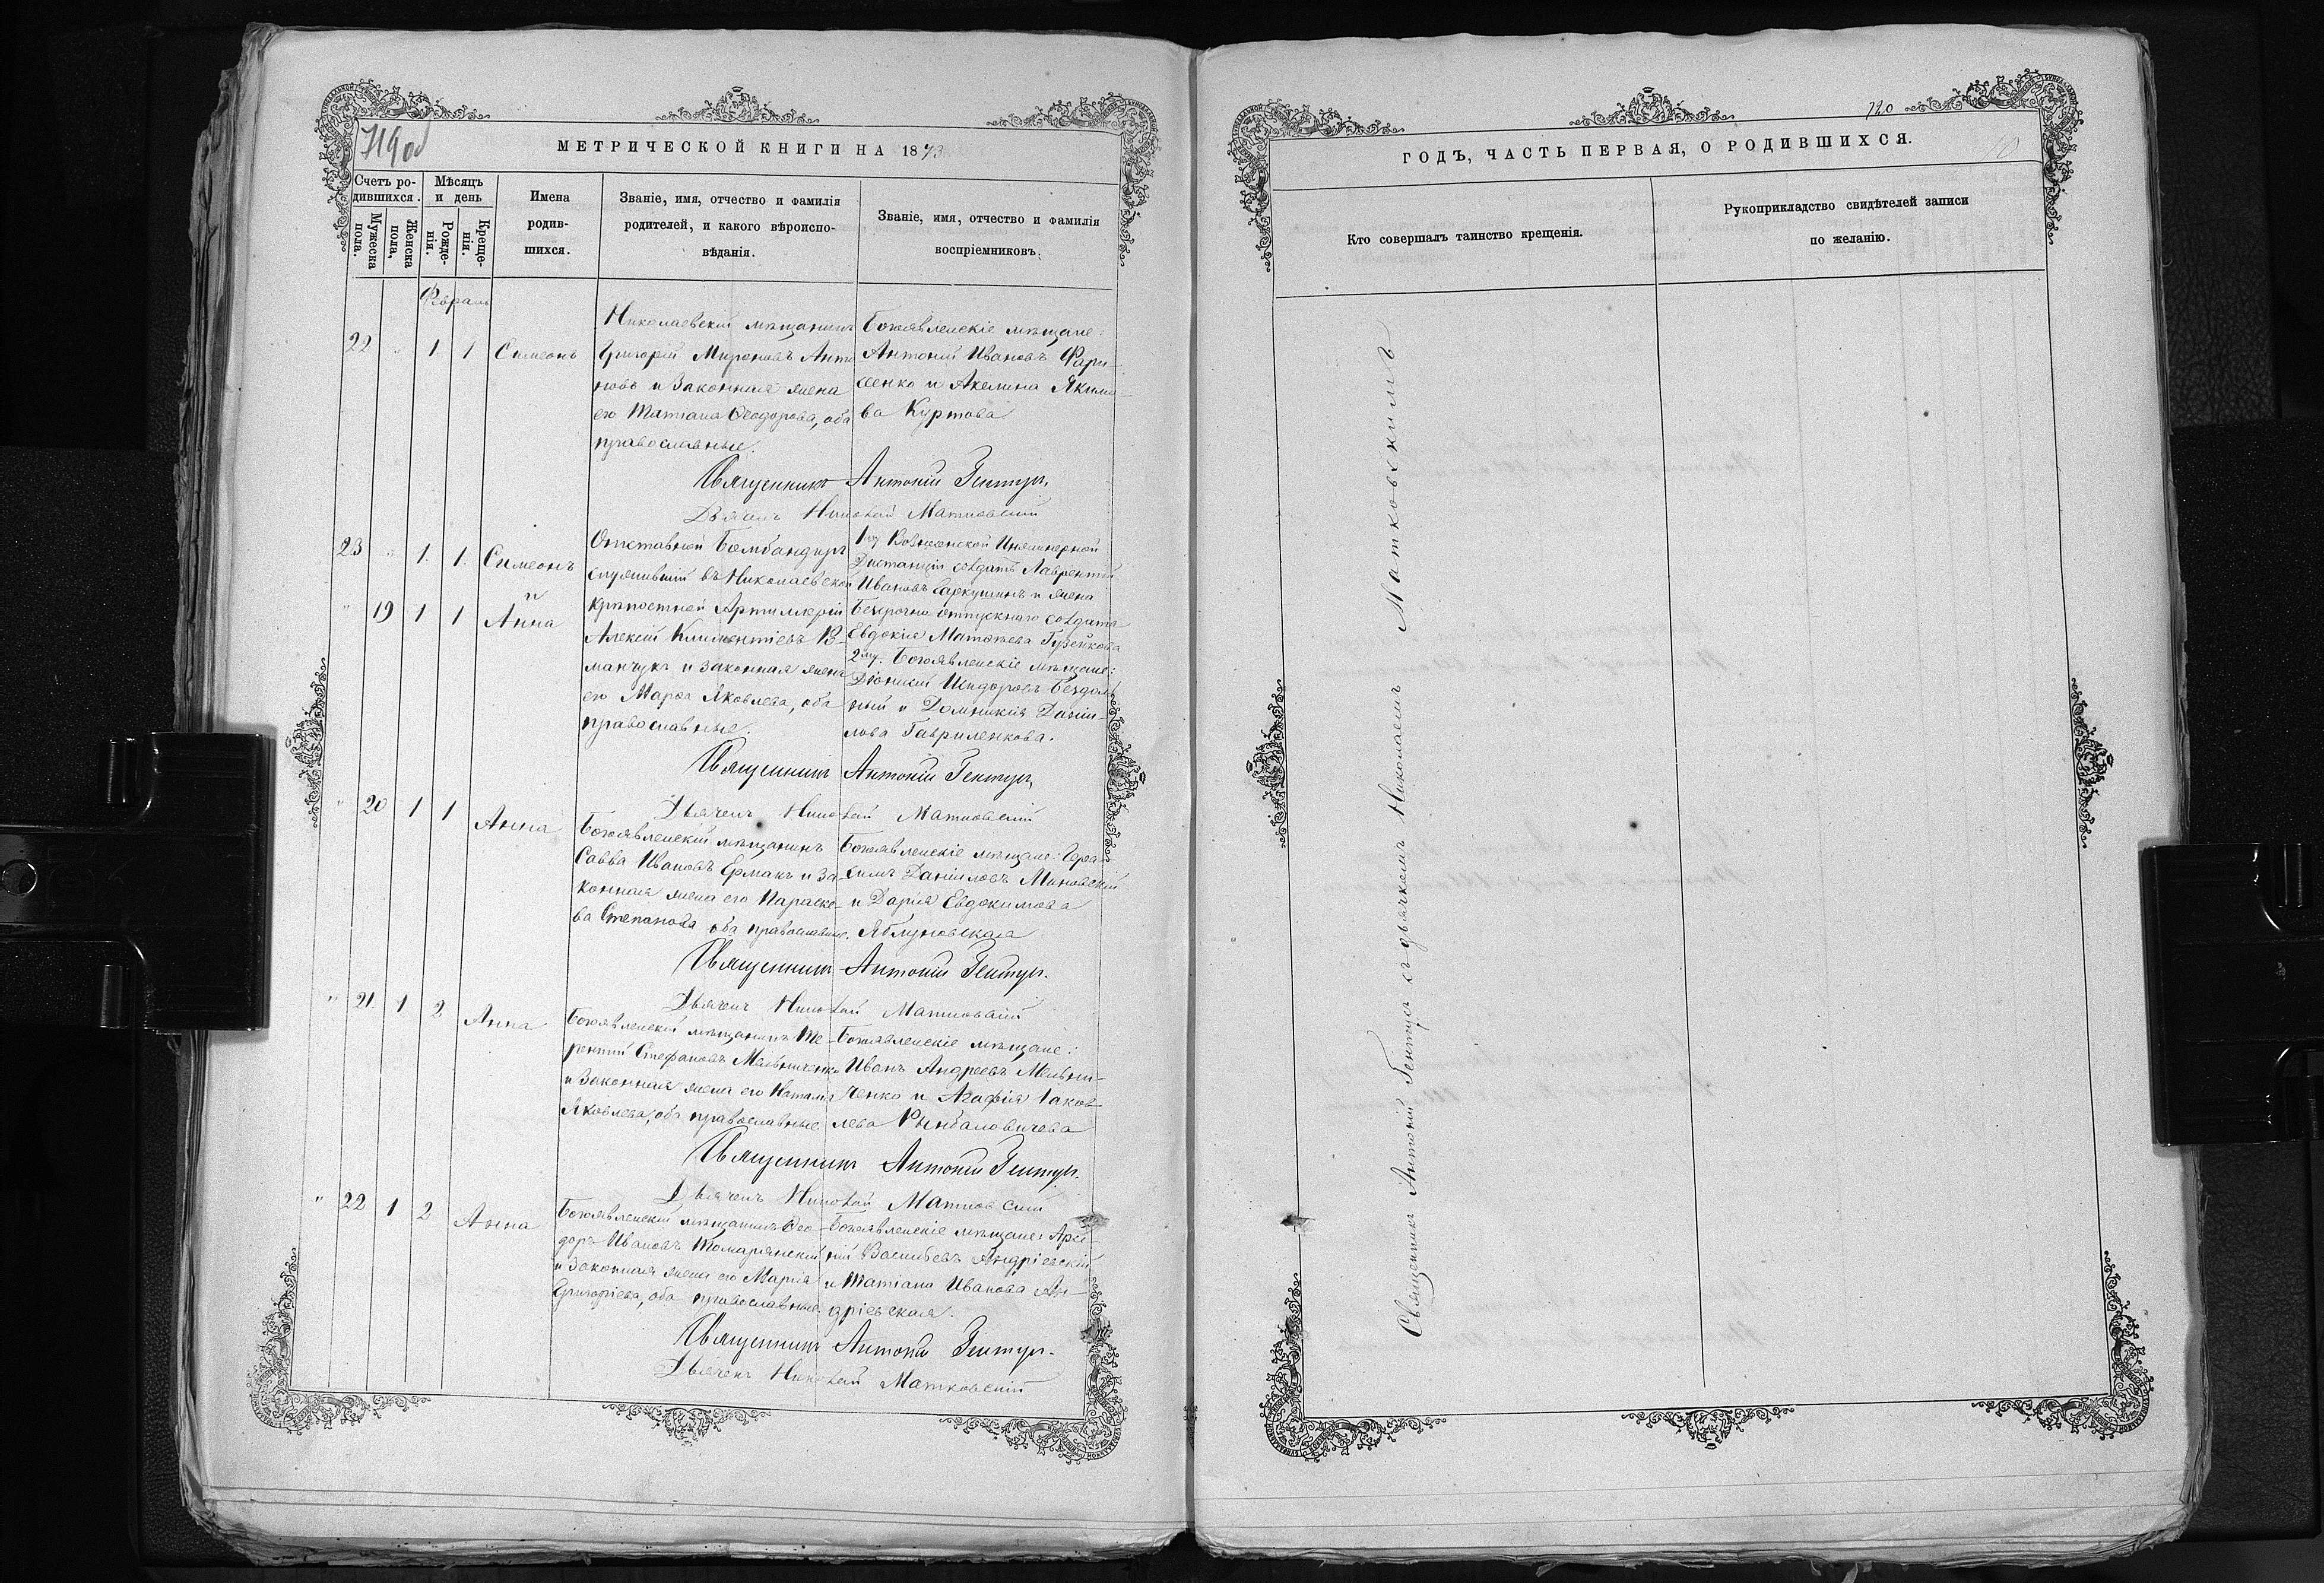 719 об
МЕТРИЧЕСКОЙ КНИГИ НА 1873
Счетъ ро-
дившихся.
Мужеска
пола.
Женска
пола,
Мѣсяцъ
и день
Рожде-
нія.
Креще-
нія.
Имена
родив-
шихся.
Званіе, имя, отчество и фамилія
родителей, и какого вѣроиспо-
вѣданія.
Званіе, имя, отчество и фамилія
воспріемниковъ.
Февраль
22 " 1 1 Симеонъ
Николаевскій мѣщанинъ
Григорій Мироновъ Анто
новъ и Законная жена
его Татіана Ѳеодорова, оба
православные.
Богоявленскіе мѣщане:
Антоній Ивановъ Фари-
сенко и Акелина Якимо-
ва Куртова
Священникъ Антоній Гентуръ.
Дьячекъ Николай Матковскій
23 " 1. 1. Симеонъ
" 19 1 1 Анна
Отставной Бомбандиръ
служившій въ Николаевской
крѣпостной Артиллеріи
Алексій Климентіевъ Ва-
манчукъ и законная жена
его Марѳа Яковлева, оба
православные.
1му Вознесенской Инженерной
Дистанціи солдатъ Лаврентій
Ивановъ и жена
Безсрочно отпускнаго солдата
Евдокія Матѳѣева Гузейкова
2му. Богоявленскіе мѣщане:
Діонисій Исидоровъ Бездоль
ный и Домникія Даніи-
лова Гавриленкова.
Священникъ Антоній Гентуръ,
Дьячекъ Николай Матковскій
" 20 1 1 Анна
Богоявленскій мѣщанинъ
Савва Ивановъ Ермакъ и За-
конная жена его Параске-
ва Степанова оба православные.
Богоявленскіе мѣщане: Гера-
симъ Даніиловъ Миновскій
и Дарія Евдокимова
Яблуновская
Священникъ Антоній Гентуръ.
Дьячекъ Николай Матковскій
" 21. 1 2 Анна
Богоявленскій мѣщанинъ Те-
рентій Стефановъ Мельниченко
и Законная жена его Наталія
Яковлева, оба православные
Богоявленскіе мѣщане:
Иванъ Андреевъ Мельни-
ченко и Агафія Іаков-
лева Рындаловичева
Священникъ Антоній Гентуръ.
Дьячекъ Николай Матковскій
" 22 1 2 Анна
Богоявленскій мѣщанинъ Ѳео-
доръ Ивановъ Томарянскій
и Законная жена его Марія
Григоріева, оба православные.
Богоявленскіе мѣщане: Арсе
ній Васильевъ Андріевскій
и Татіана Иванова Ан-
дріевская.
Священникъ Антоній Гентуръ.
Дьячекъ Николай Матковскій
720
ГОДЪ, ЧАСТЬ ПЕРВАЯ, О РОДИВШИХСЯ.
Кто совершалъ таинство крещенія.
Рукоприкладство свидѣтелей записи
по желанію.
Священникъ Антоній Гентуръ съ дьячкомъ Николаемъ Матковскимъ